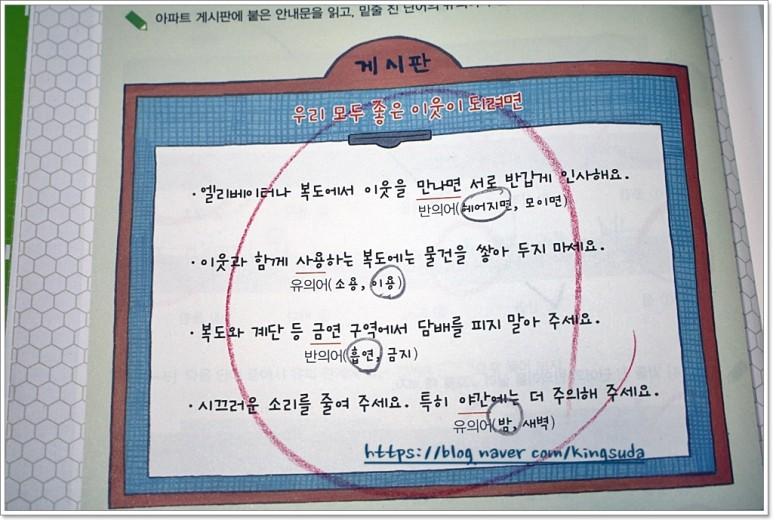 아파트 게시판에 붙은 안내문을 읽고, 밑줄 친 단어의
게시판
우리 모두 좋은 이웃이 되려면
· 엘리베이터나 복도에서 이웃을 만나면 서로 반갑게 인사해요.
반의어(헤어지면, 모이면)
· 이웃과 함께 사용하는 복도에는 물건을 쌓아 두지 마세요.
유의어(소용, 이용)
· 복도와 계단 등 금연 구역에서 담배를 피지 말아 주세요.
반의어(흡연, 금지)
· 시끄러운 소리를 줄여 주세요. 특히 야간에는 더 주의해 주세요.
유의어(밤, 새벽)
https://blog.naver.com/kingsuda